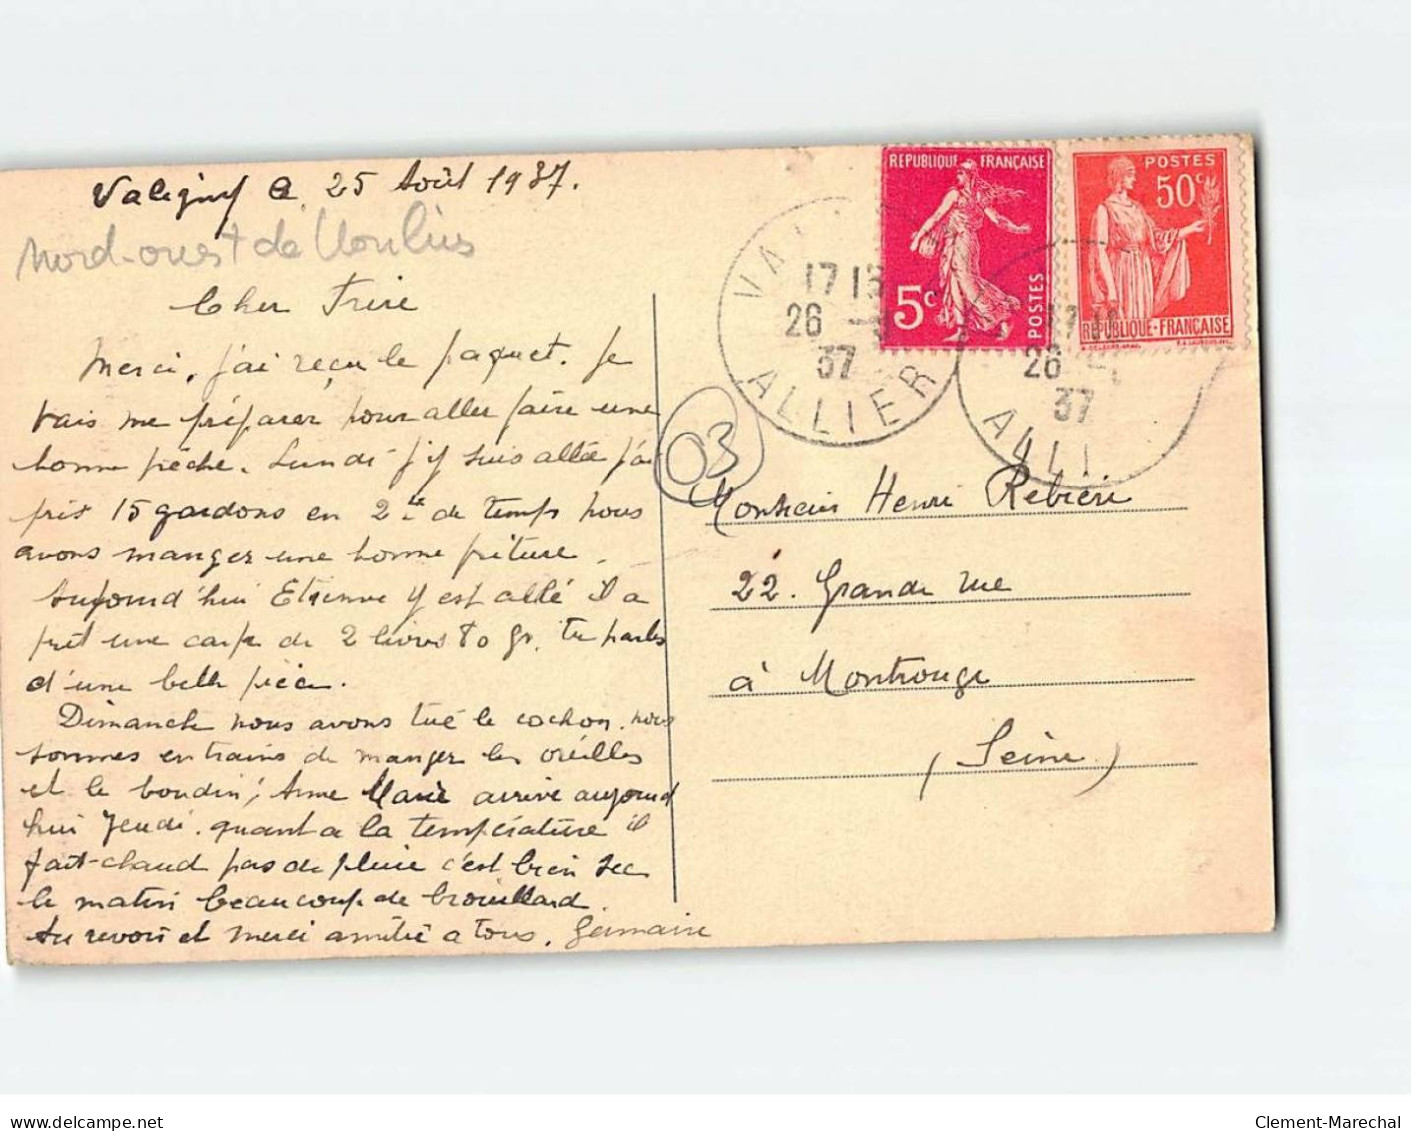 Valigny le 25 Août 1937.
nord-ouest de Moulins
Cher Frère
Merci, j'ai reçu le paquet. Je
vais me préparer pour aller faire une
bonne pêche. Lundi j'y suis allée j'ai
pris 15 gardons en 2 h de temps nous
avons manger une bonne friture.
Aujourd'hui Etienne y est allé il a
prit une carpe de 2 livres 80 gr. tu parles
d'une belle pièce.
Dimanche nous avons tué le cochon. nous
sommes en trains de manger les oreilles
et le boudin; Anne Marie arrive aujourd
hui Jeudi. quant a la température il
fait chaud pas de pluie c'est bien sec
le matin beaucoup de brouillard.
Au revoir et merci amitié a tous. Germaine
REPUBLIQUE FRANÇAISE
5c
POSTES
POSTES
50c
REPUBLIQUE-FRANÇAISE
VA
17 15
26
37
ALLIER
26
37
ALLI
03
Monsieur Henri Rebière
22. Grande rue
à Montrouge
(Seine)
delcampe.net
Clement-Marechal